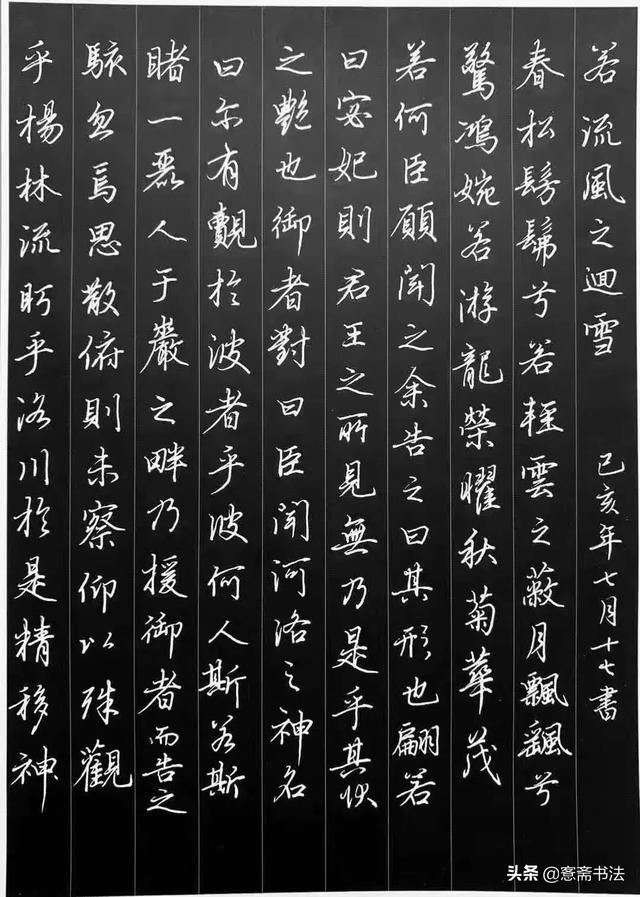 乎楊林流眄乎洛川於是精移神
駭忽焉思散俯則未察仰以殊觀
睹一麗人于巖之畔乃援御者而告之
曰尔有覿於彼者乎彼何人斯若斯
之艷也御者對曰臣聞河洛之神名
曰宓妃則君王之所見無乃是乎其狀
若何臣願聞之余告之曰其形也翩若
驚鴻婉若游龍榮曜秋菊華茂
春松髣髴兮若輕雲之蔽月飄颻兮
若流風之迴雪
己亥年七月十七書
头条 @窓斋书法